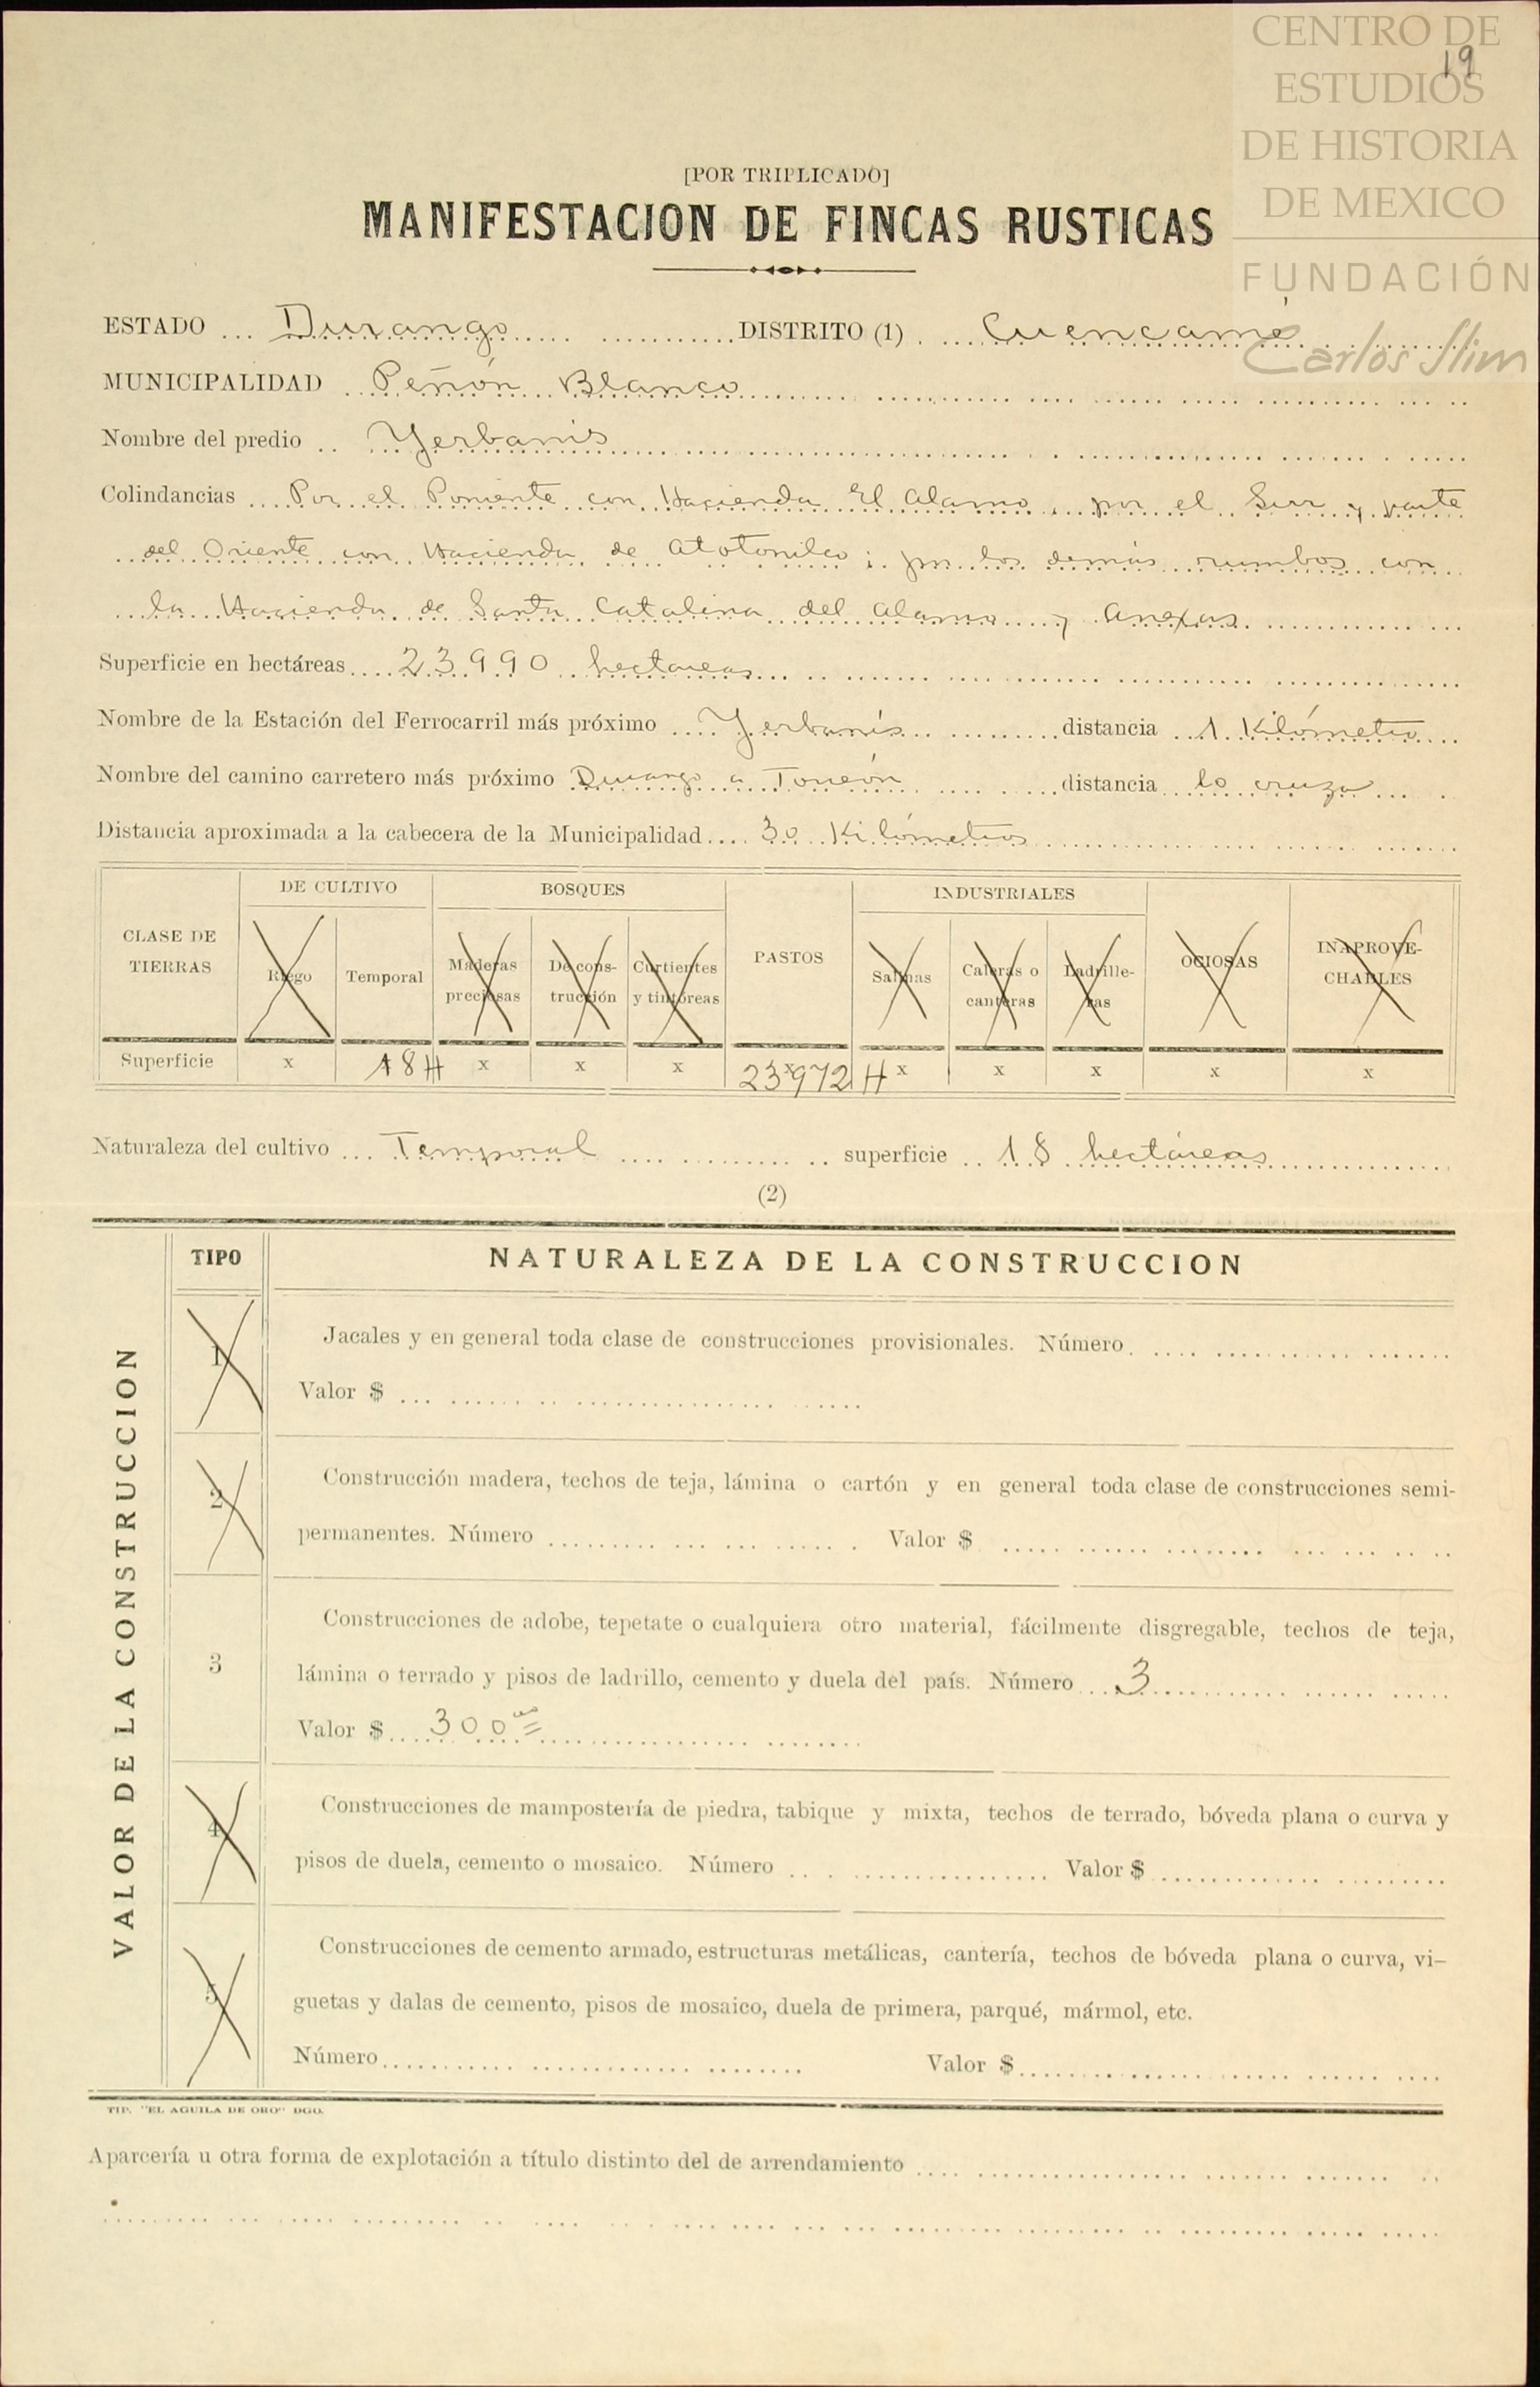 CENTRO DE
ESTUDIOS
DE HISTORIA
DE MEXICO
FUNDACIÓN
Carlos Slim
19
[POR TRIPLICADO]
MANIFESTACION DE FINCAS RUSTICAS
ESTADO Durango DISTRITO (1) Cuencamé
MUNICIPALIDAD Peñón Blanco
Nombre del predio Yerbanis
Colindancias Por el Poniente con Hacienda El Alamo, por el Sur y parte
del Oriente con Hacienda de Atotonilco; por los demás rumbos con
la Hacienda de Santa Catalina del Alamo y Anexas
Superficie en hectáreas 23990 hectareas
Nombre de la Estación del Ferrocarril más próximo Yerbanis distancia 1 Kilómetro
Nombre del camino carretero más próximo Durango a Torreón distancia lo cruza
Distancia aproximada a la cabecera de la Municipalidad 30 Kilómetros
CLASE DE TIERRAS
DE CULTIVO
BOSQUES
PASTOS
INDUSTRIALES
OCIOSAS
INAPROVE-CHABLES
Riego
Temporal
Maderas preciosas
De cons-trucción
Curtientes y tintóreas
Salinas
Caleras o canteras
Ladrille-ras
Superficie x 18 H x x x x 23972 H x x x x x
Naturaleza del cultivo Temporal superficie 18 hectáreas
(2)
VALOR DE LA CONSTRUCCION
TIPO NATURALEZA DE LA CONSTRUCCION
1 Jacales y en general toda clase de construcciones provisionales. Número
Valor $
2 Construcción madera, techos de teja, lámina o cartón y en general toda clase de construcciones semi-
permanentes. Número Valor $
Construcciones de adobe, tepetate o cualquiera otro material, fácilmente disgregable, techos de teja,
3 lámina o terrado y pisos de ladrillo, cemento y duela del país. Número 3
Valor $ 300 00
4 Construcciones de mampostería de piedra, tabique y mixta, techos de terrado, bóveda plana o curva y
pisos de duela, cemento o mosaico. Número Valor $
Construcciones de cemento armado, estructuras metálicas, cantería, techos de bóveda plana o curva, vi-
5 guetas y dalas de cemento, pisos de mosaico, duela de primera, parqué, mármol, etc.
Número Valor $
TIP. "EL AGUILA DE ORO" DGO.
Aparcería u otra forma de explotación a título distinto del de arrendamiento